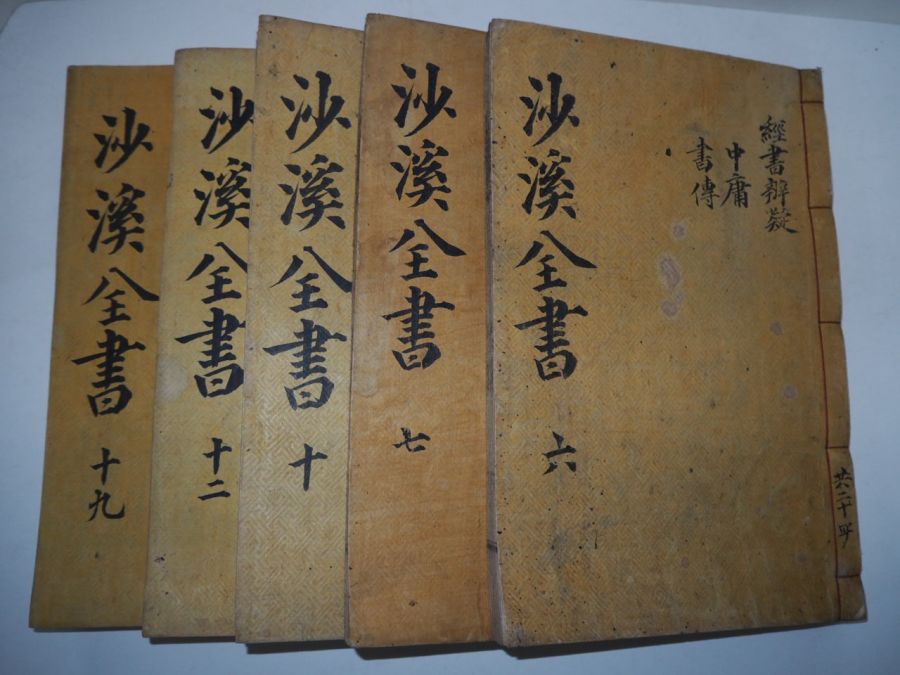 沙溪全書 六
經書辨疑
中庸
書傳
共二十冊
沙溪全書 七
沙溪全書 十
沙溪全書 十二
沙溪全書 十九